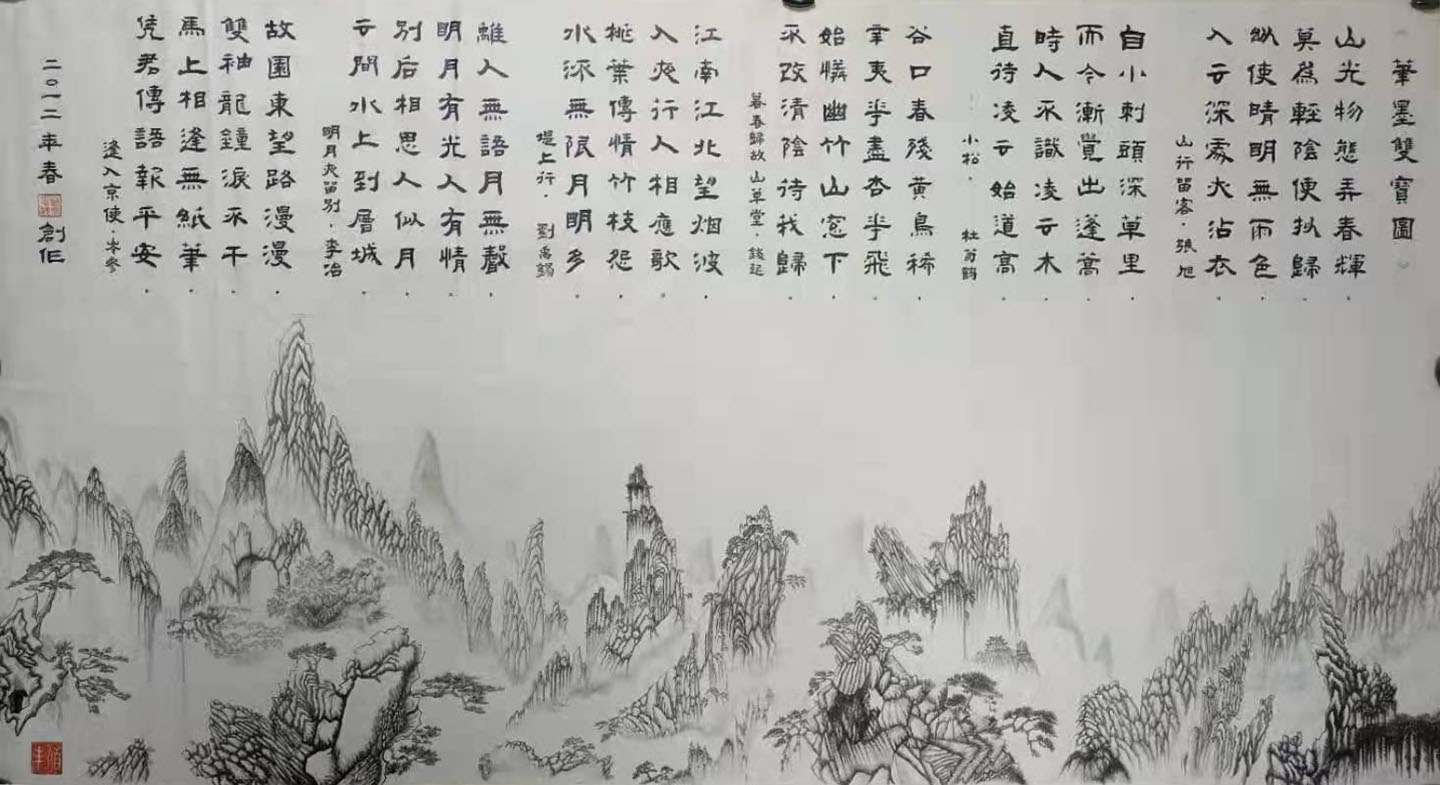 筆墨雙寶圖
山光物態弄春輝
莫爲輕陰便拟歸
縱使晴明無雨色
入云深處亦沾衣
山行留客·張旭
自小刺頭深草里
而今漸覺出蓬蒿
時人不識凌云木
直待凌云始道高
小松· 杜荀鶴
谷口春殘黄鳥稀
辛夷花盡杏花飛
始憐幽竹山窓下
不改清陰待我歸
暮春歸故山草堂·錢起
江南江北望烟波
入夜行人相應歌
桃葉傳情竹枝怨
水流無限月明多
堤上行·劉禹錫
離人無語月無聲
明月有光人有情
別后相思人似月
云間水上到層城
明月夜留别·李冶
故園東望路漫漫
雙袖龍鐘淚不干
馬上相逢無紙筆
凭君傳語報平安
逢入京使·岑参
二〇一二年春 創作